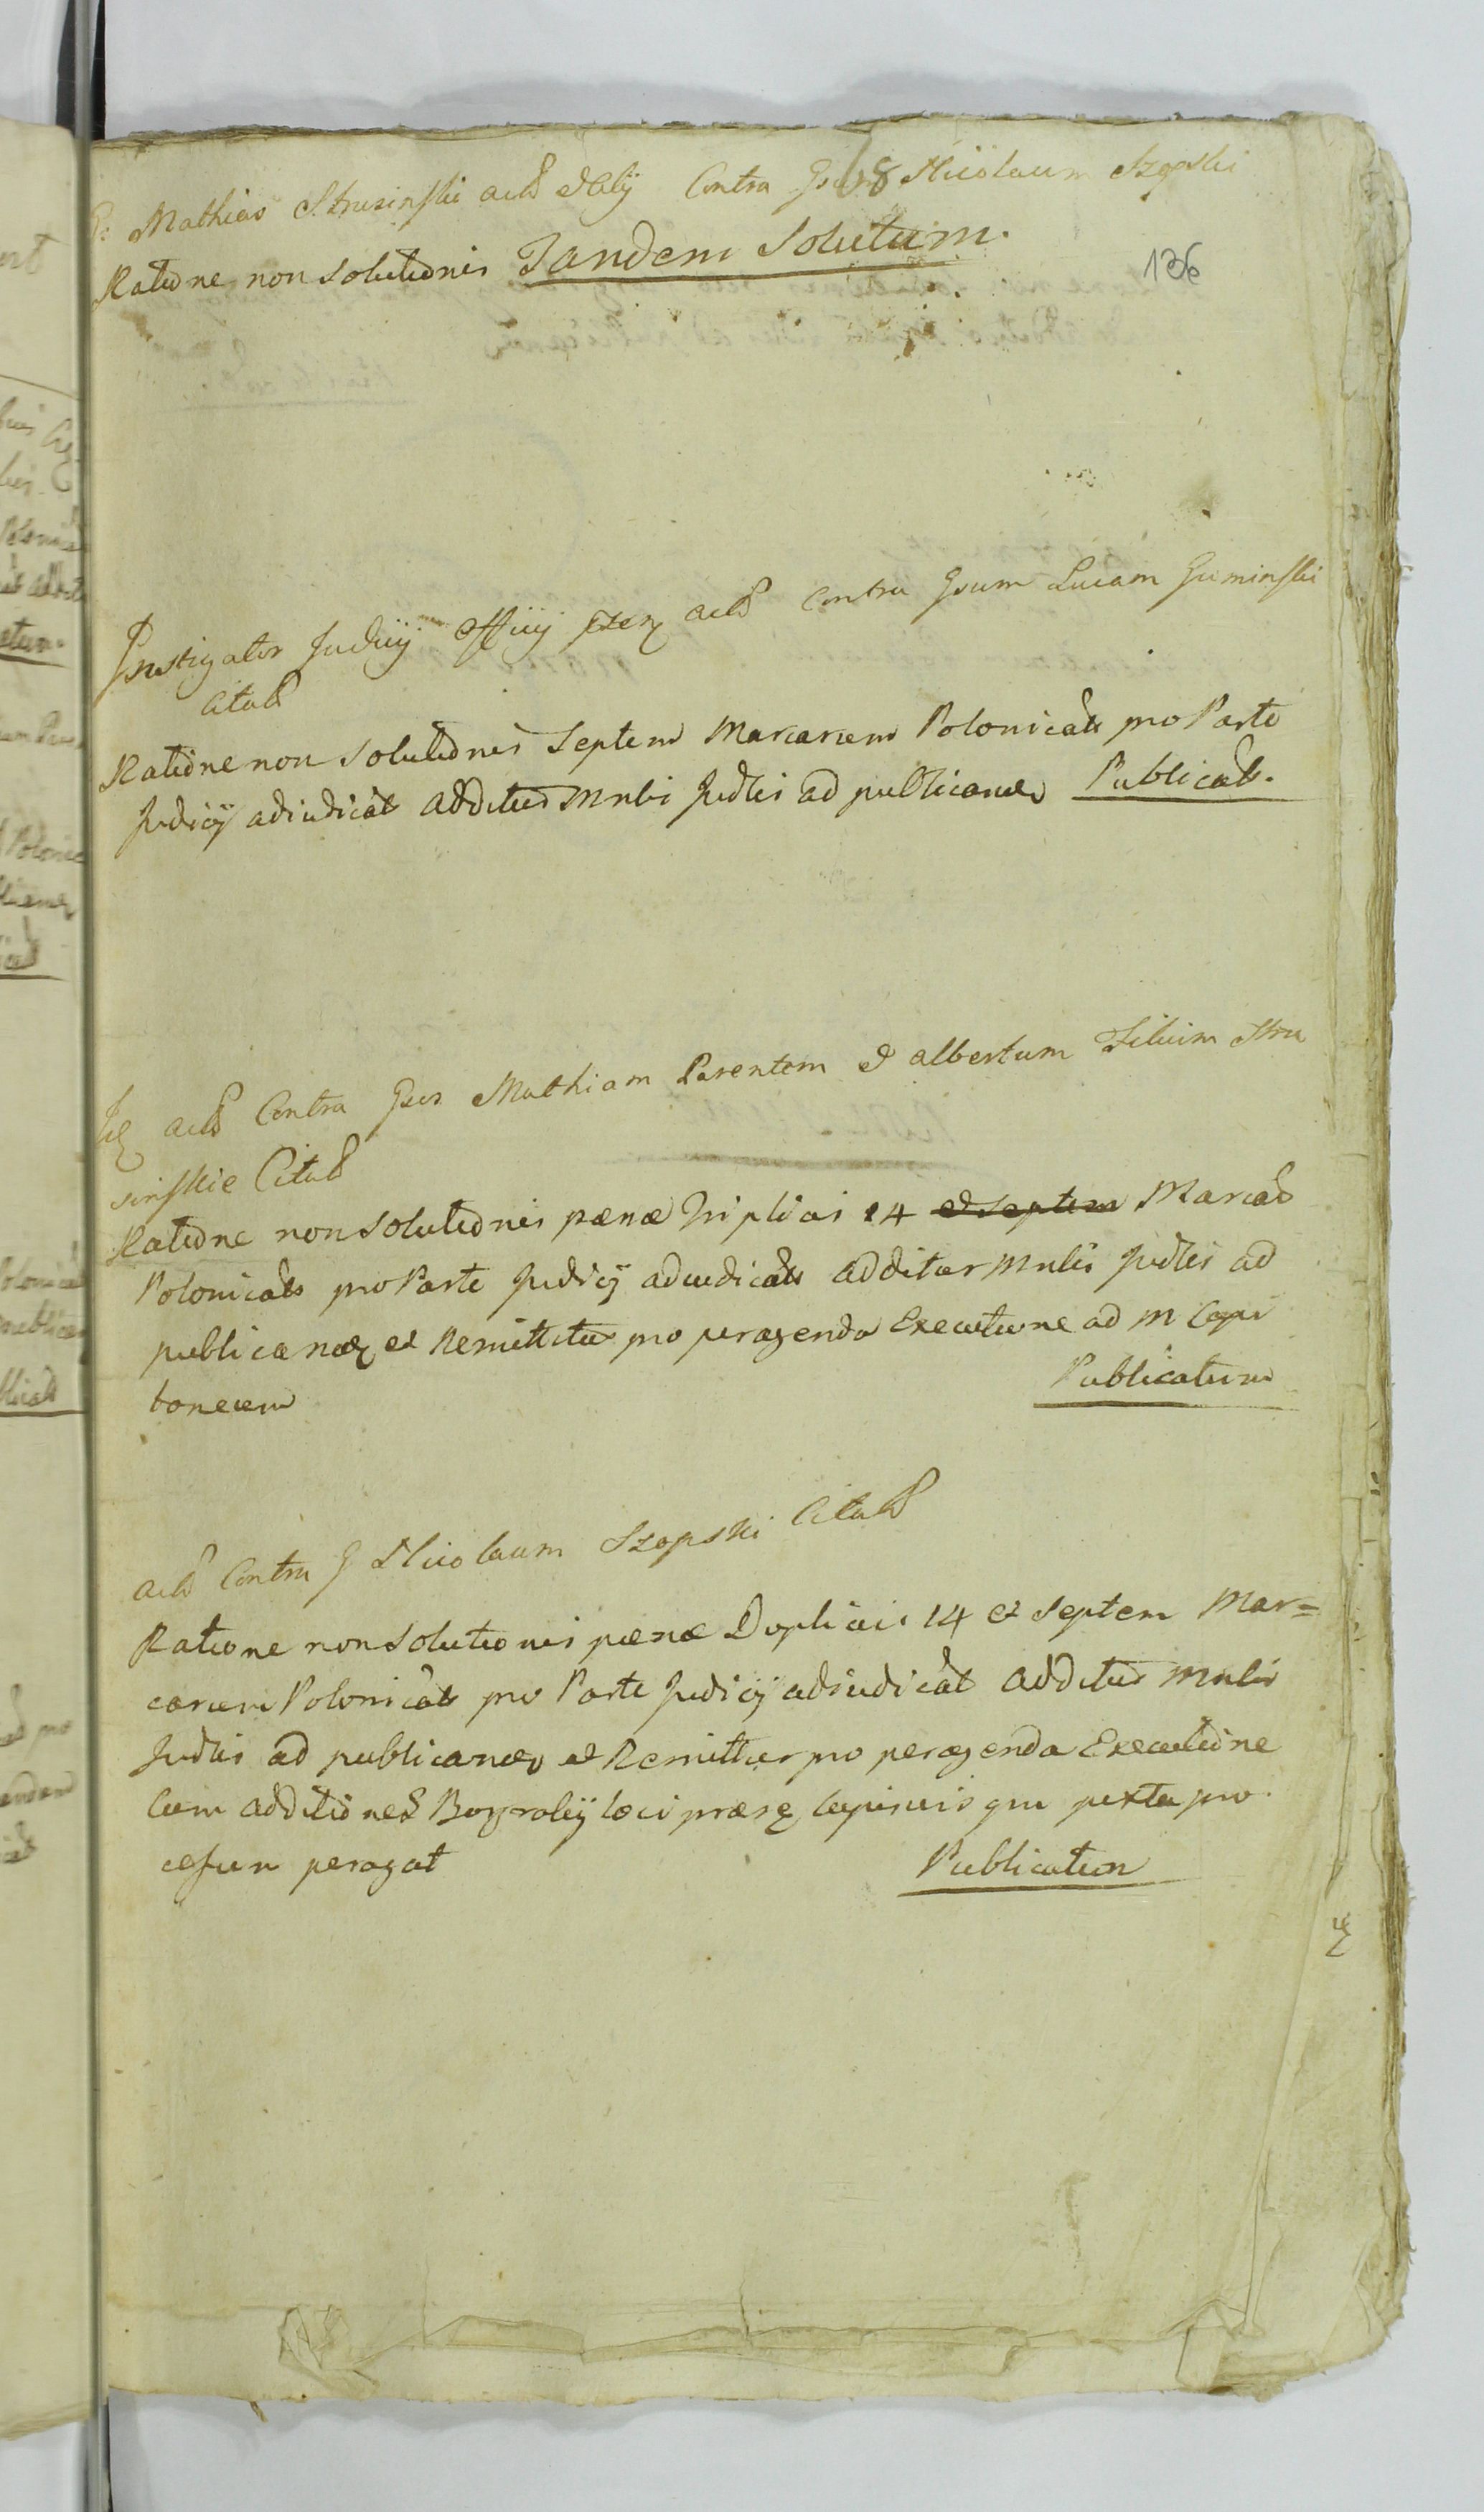 G: Mathias Strusinski actŏ et Alij Contra Gsum Nicolaum Szopski
68
136
Ratione non solutionis Tandem Solutum.
Instigator Judicij Officij actŏ Contra Gsum Lucam Guminski
Citatŏ
Ratione non solutionis Septem Marcarum Polonicalt pro Parte
Judicij adiudicat additur Judlis ad publicand Publicat.
actŏ Contra Gsos Mathiam Parentem et Albertum Filium Stru
sinskie Citatŏ
Ratione non solutionis pænæ Triplicis 14 et septem Marcarŏ
Polonicalt pro Parte Judicij adiudicat additur Judlis ad
publicand et Remittitur pro peragenda Executione ad m Capi
taneum
Publicatum
actŏ Contra G Nicolaum Szopski Citatŏ
Ratione non solutionis pænæ Duplicis 14 et septem Mar=
carum Polonicalt pro Parte Judicij adiudicat additur
Judlis ad publicand et Remittitur pro peragenda Executione
Cum additione loci qui juxta pro
cessum peragat
Publicatum